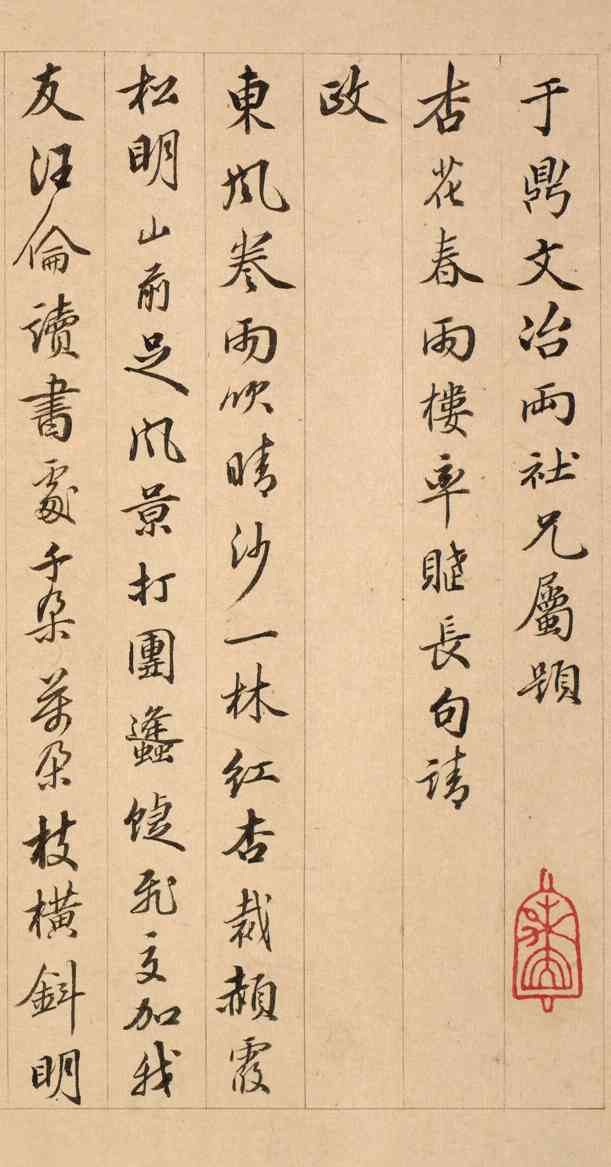 于鼎文冶兩社兄屬題
杏花春雨樓率賦長句請
政
東風卷雨吹晴沙一林紅杏裁赬霞
松明山前足風景打團蠭蜨飛交加我
友汪倫讀書處千朵萬朵枝橫斜明